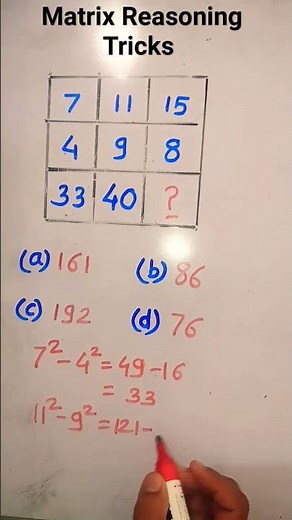 Matrix Reasoning
Tricks
7 11 15
4 9 8
33 40 ?
(a) 161 (b) 86
(c) 192 (d) 76
7² - 4² = 49 - 16
= 33
11² - 9² = 121 -